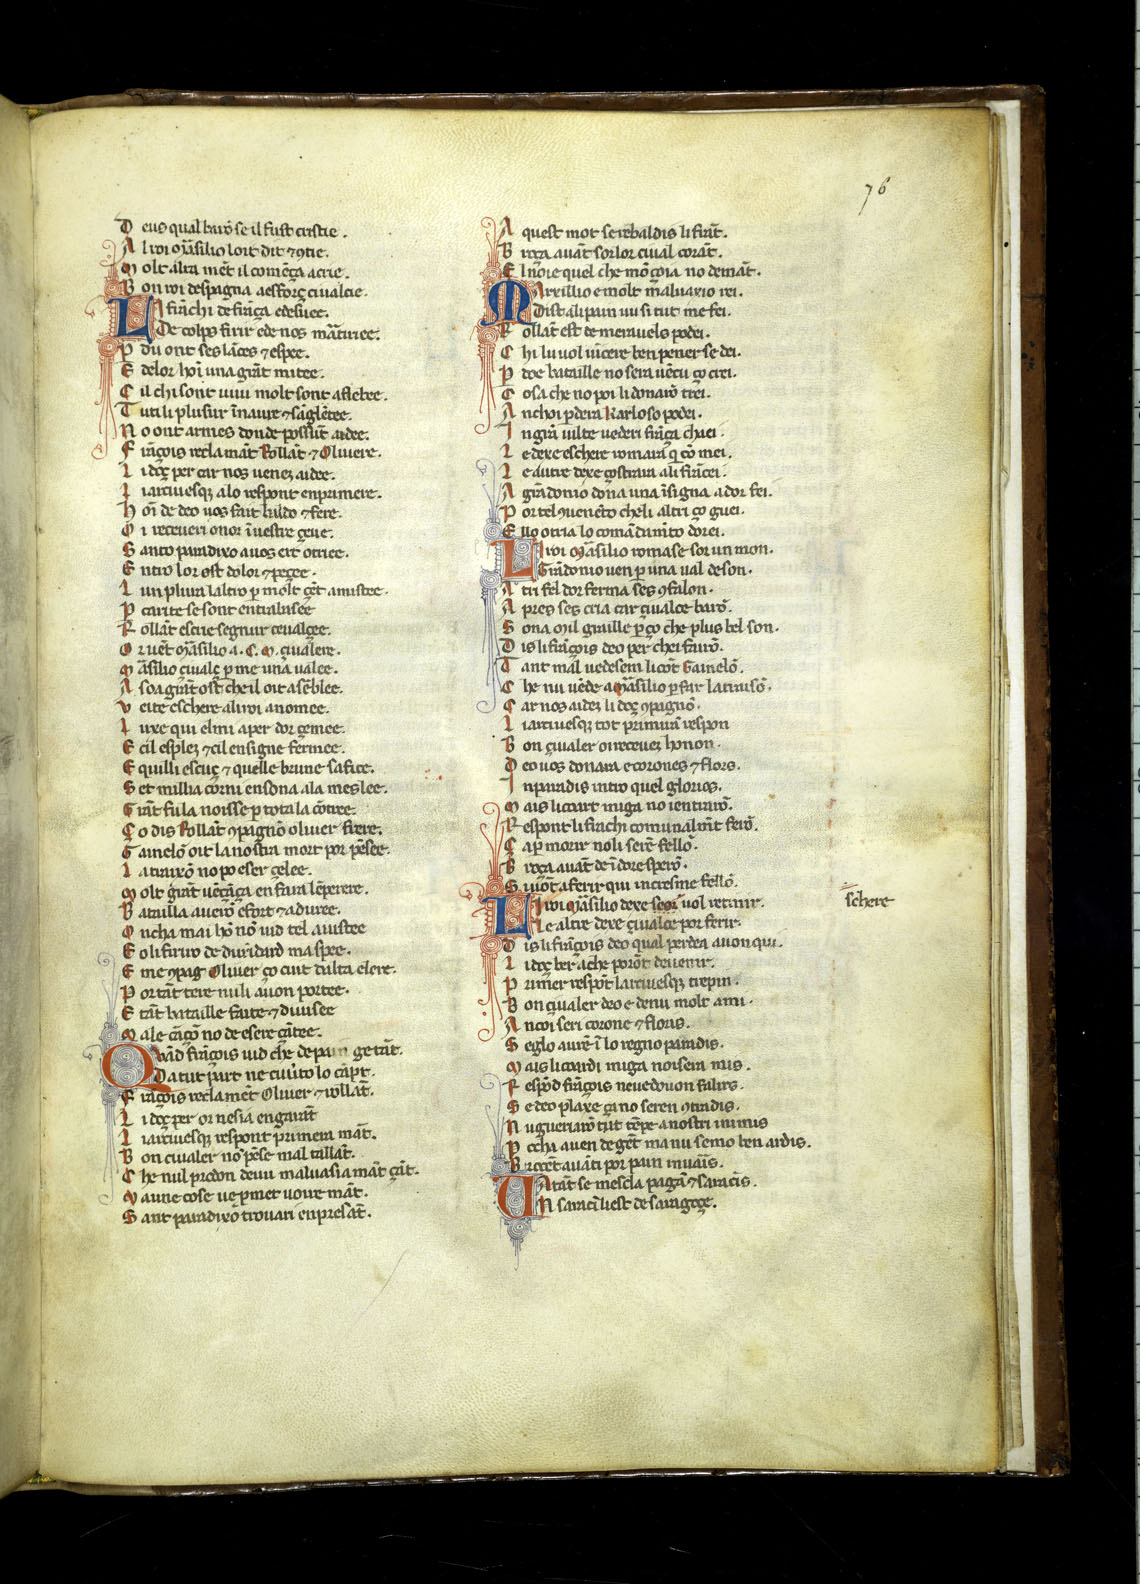 76
D eus qual barō se il fust cristie .
A l roi M̄asilio loit dit ⁊ ꝯtie .
M olt alta mēt il comēça a crie .
B on roi despagna aesforç ciualcie .
L A frāchi de frāça edesuee .
De colps ferir ede nos mārtiriee .
P du ont ses lāces ⁊ espee .
E delor hoī una grāt mitee .
C il chi sont uiui molt sont aflebee .
T uti li plusur īnaure ⁊ sāglētee .
N o ont armes donde possūt aidee .
F rāçois reclamāt Rollāt ⁊ Oliuere .
L i doç per car nos uenez aidee .
L i arciuesq̄ alo respont enprimere .
H oī de deo uos fait baldo ⁊ fere .
O i receueri onor ī uestre çeue .
S anto paradixo auos ert otriee .
E ntro lor est dolor ⁊ peçee .
L un plura laltro p̱ molt ḡt amistee .
P carite se sont entrabasee
R ollāt escrie segnur ceualçee .
O r uēt M̄asilio a . C . M . çiualere .
M āsilio çiualç p̱ me una ualee .
A soa grāt ost che il oit asēblee .
V ente eschere ali roi anomee .
L uxe qui elmi aper dor çemee .
E cil esplez ⁊ cil ensigne fermee .
E quilli escuç ⁊ quelle brune safree .
S et millia corni ensona ala meslee .
G rāt fu la noisse p̱ tota la cōtree .
Ç o dis Rollāt ꝯpagnō oliuer frere .
G ainelō oit la nostra mort por pēsee .
L a traixō no po eser çelee .
M olt grāt uēçāça en fara lēperere .
B atailla auerō efort ⁊ aduree .
O ncha mai hō nō uid tel auistee
E o li firiro de durīdard ma spee .
E me ꝯpag Oliuer ço cuit dalta clere .
P ortāt tere nuli auon portee .
E tāt bataille faite ⁊ diuisee
M ale cāçō no de esere cātee .
Q Vād frāçois uid che de pain getāt .
Da tut part ne cuuīto lo cāpt .
F rāçois reclamēt Oliuer ⁊ rollāt .
L i doç per or nesia engarāt
L i arciuesq̄ respont primera māt .
B on ciualer nō pēse mal tallāt .
C he nul prodon deuu maluasia māt çāt .
M aune cose ue p̱met uoire māt .
S ant paradixō trouari en presāt .
A quest mot se rebaldis li frāt .
B roça auāt sor lor ciual corāt .
E l noie quel che mōçoia no demāt .
M Arsilio e molt maluaxio rei .
Dist ali pain uu si tut me fei .
R ollāt est de merauels podei .
C hi lu uol uicere ben pener se dei .
P doe bataille no sera uēcu ço crei .
C osa che no poi li donarō trei .
A nchoi p̱dera Karlo so podei .
I n grā uilte uederi frāça chaei .
L e dexe eschere romara q̄ cō mei .
L e autre dexe ço strara ali frācei .
A grādonio dona una īsigna ador fei .
P or tel ꝯuenēto cheli altri ço guei .
E llo otria lo comādamīto dorei .
L I roi M̄asilio romase sor un mon .
Grādonio uen p̱ una ual de son .
A tri fel dor ferma ses ꝯfalon .
A pres ses cria car çiualce barō .
S ona mil graille p̱ ço che plus bel son .
D is li frāçois deo per chei farō .
T ant mal uedesem li cōt Gainelō .
C he nu uēde a M̄asilio p̱ far la traisō .
C ar nos aidez li doç ꝯpagnō .
L i arciuesq̄ tot primirā respon
B on çiualer oi receuez honon .
D eo uos donara e corones ⁊ flors .
I n paradis intro quel glorios .
M ais li coart miga no ientrarō .
R espont li frāchi comunalmīt ferō .
Ç a p̱ morir no li serē fellō .
B roça auāt de ī dor esperō .
S i uōt a ferir qui incresme fellō .
L I roi M̄asilio dexe seor uol retinir .
Le altre dexe çiualçe por ferir .
D is li frāçois deo qual perdea auon qui .
L i doç ber ache porōt deuenir .
P rimer respōt larciuesq̄ trepin .
B on çiualer deo e de nu molt ami .
A ncoi seri corone ⁊ floris .
S eglo aurē ī lo regno paradis .
M ais li coardi miga noisem mis .
R espōd frāçois ne uedouon falirs .
S e deo plaxe ça no seren ꝯtradis .
N u guerrarō tut tēpe a nostri inimis
P echa auen de gēt ma nu semo ben ardis .
B rocēt auāti por pain inuaīs .
U A tāt se mescla pagā ⁊ saracīs .
N saracī li est de saragoçe .
schere